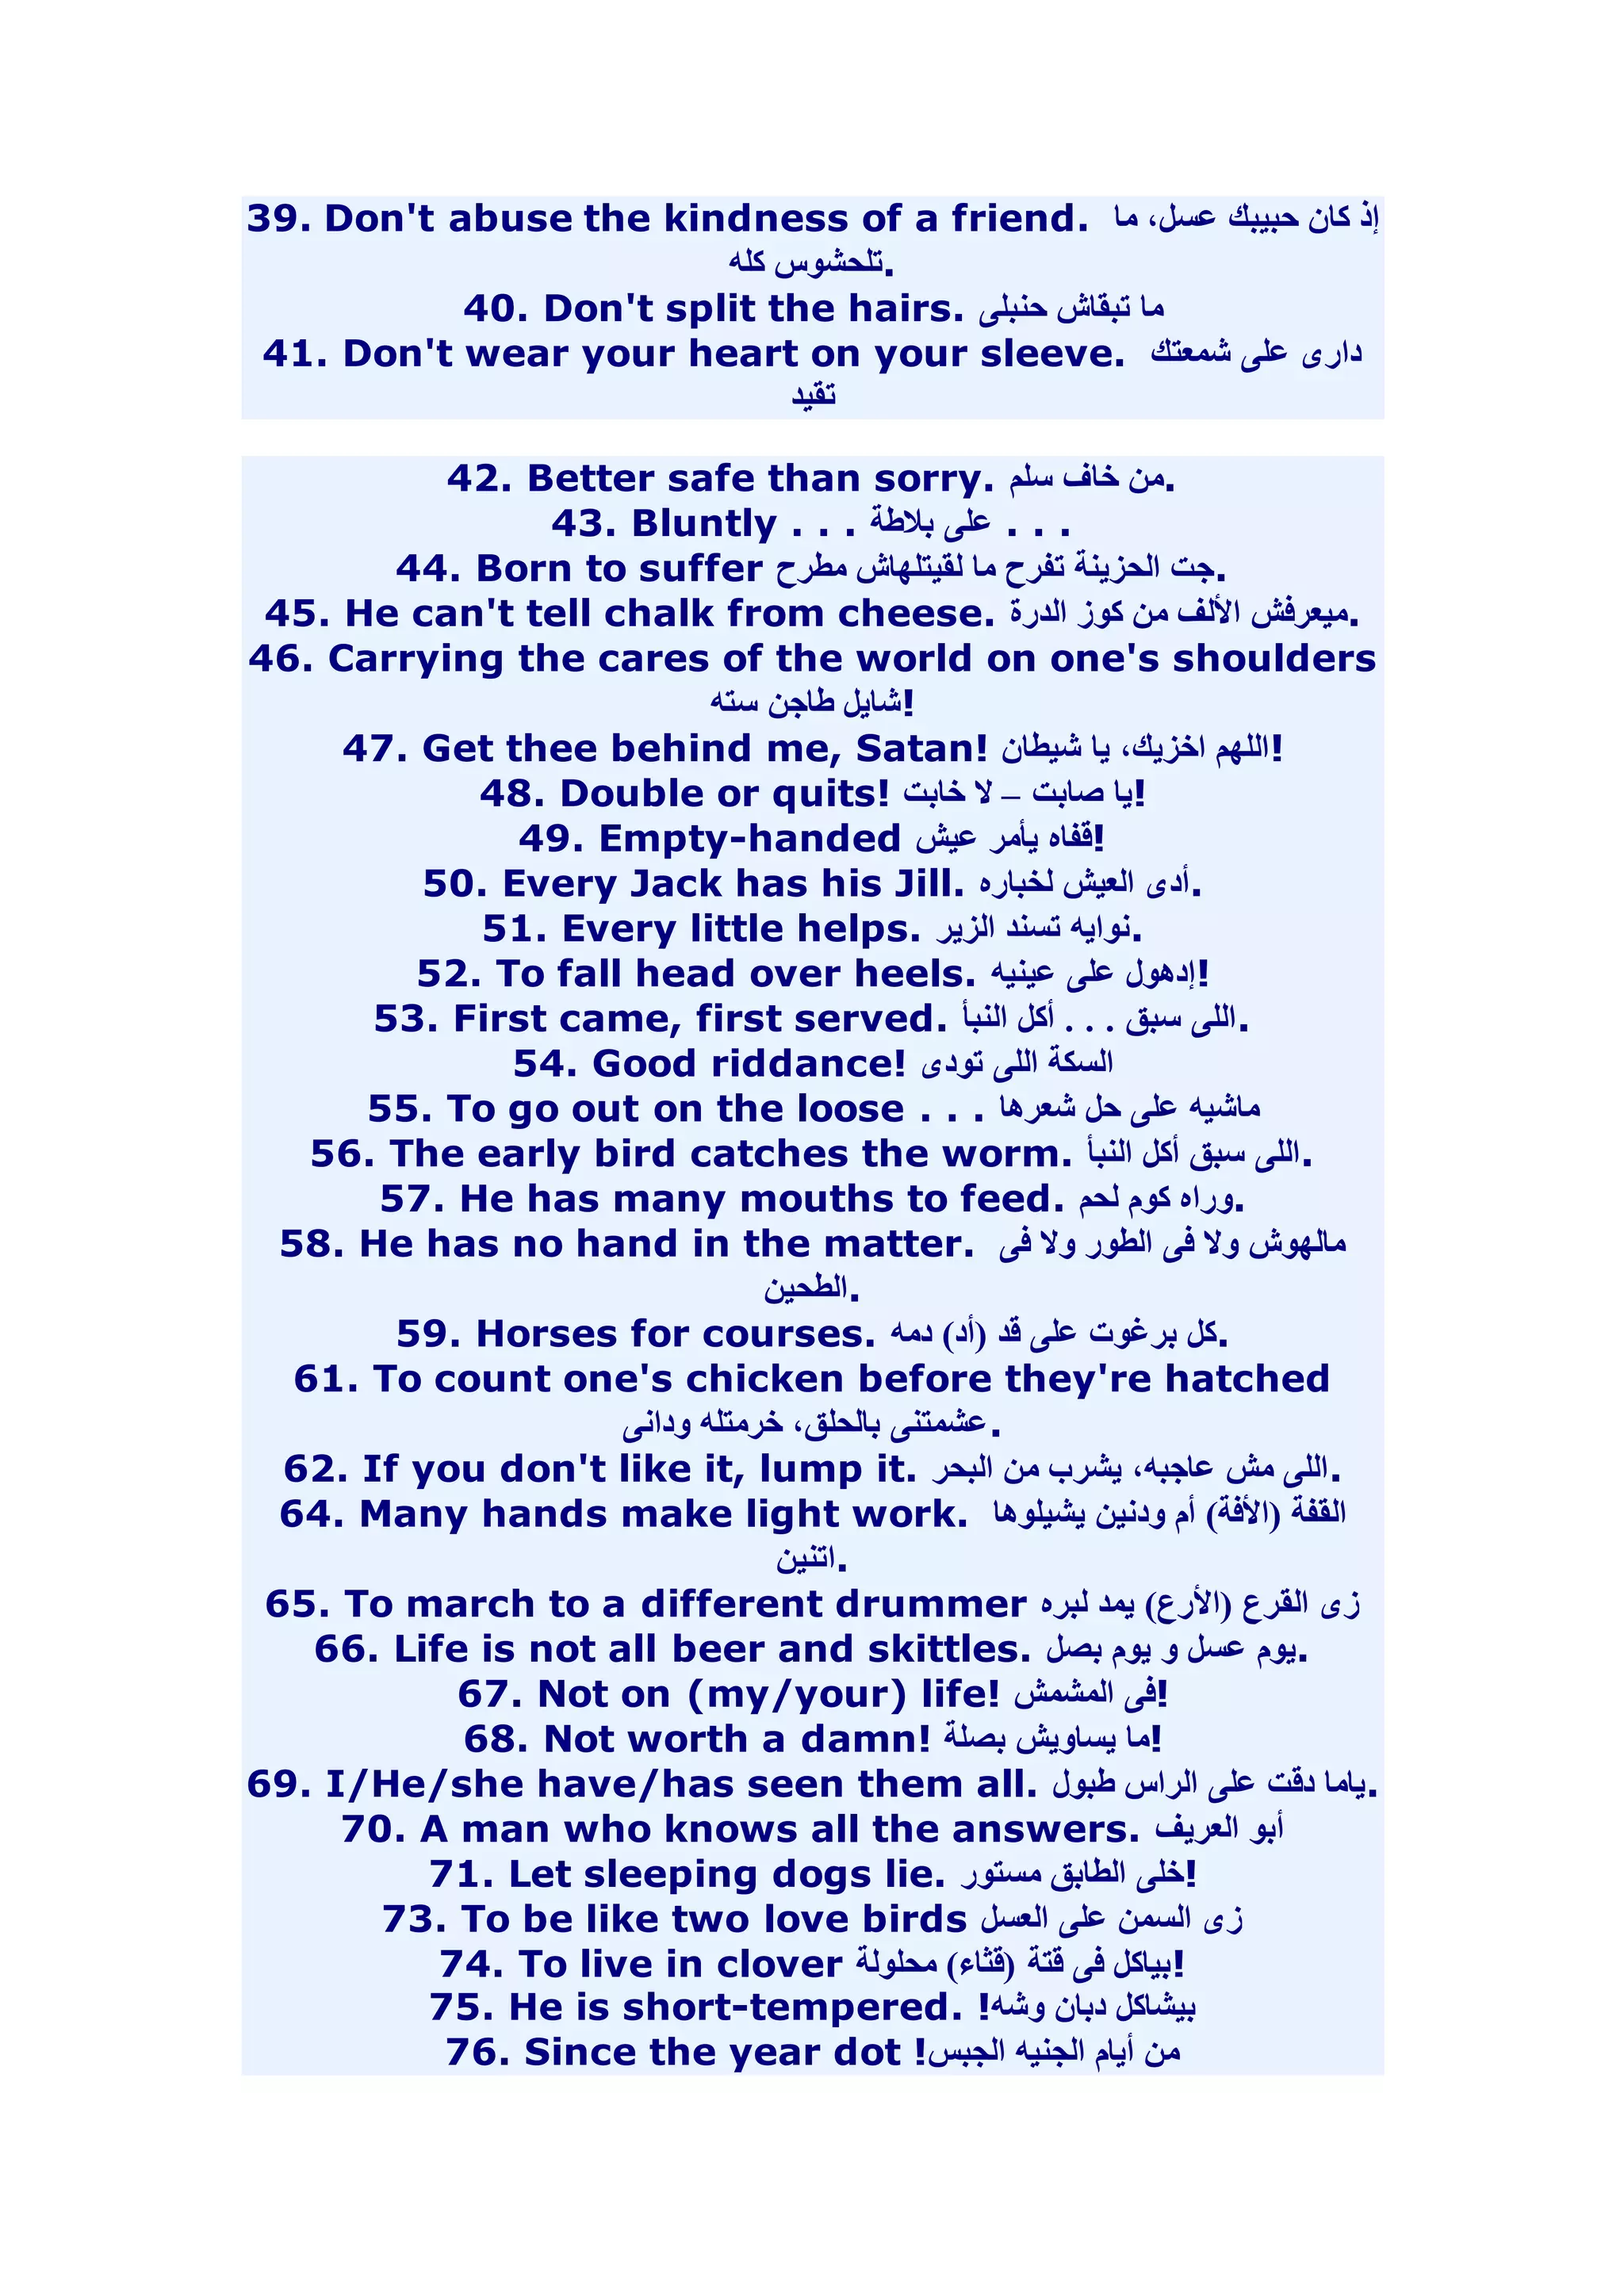 39. Don't abuse the kindness of a friend. إذ كان حبيبك عسل، ما
تلحشوس كله.
40. Don't split the hairs. ما تبقاش حنبلى
41. Don't wear your heart on your sleeve. دارى على شمعتك
تقيد
42. Better safe than sorry. من خاف سلم.
43. Bluntly . . . على بلاطة . . .
44. Born to suffer جت الحزينة تفرح ما لقيتلهاش مطرح.
45. He can't tell chalk from cheese. ميعرفش الألف من كوز الدرة.
46. Carrying the cares of the world on one's shoulders
شايل طاجن سته!
47. Get thee behind me, Satan! اللهم اخزيك، يا شيطان!
48. Double or quits! يا صابت – لا خابت!
49. Empty-handed قفاه يأمر عيش!
50. Every Jack has his Jill. أدى العيش لخباره.
51. Every little helps. نوايه تسند الزير.
52. To fall head over heels. إدهول على عينيه!
53. First came, first served. اللى سبق . . . أكل النبأ.
54. Good riddance! السكة اللى تودى
55. To go out on the loose . . . ماشيه على حل شعرها
56. The early bird catches the worm. اللى سبق أكل النبأ.
57. He has many mouths to feed. وراه كوم لحم.
58. He has no hand in the matter. مالهوش ولا فى الطور ولا فى
الطحين.
59. Horses for courses. كل برغوت على قد (أد) دمه.
61. To count one's chicken before they're hatched
عشمتنى بالحلق، خرمتله ودانى.
62. If you don't like it, lump it. اللى مش عاجبه، يشرب من البحر.
64. Many hands make light work. القفة (الأفة) أم ودنين يشيلوها
اتنين.
65. To march to a different drummer زى القرع (الأرع) يمد لبره
66. Life is not all beer and skittles. يوم عسل و يوم بصل.
67. Not on (my/your) life! فى المشمش!
68. Not worth a damn! ما يساويش بصلة!
69. I/He/she have/has seen them all. ياما دقت على الراس طبول.
70. A man who knows all the answers. أبو العريف
71. Let sleeping dogs lie. خلى الطابق مستور!
73. To be like two love birds زى السمن على العسل
74. To live in clover بياكل فى قتة (قثاء) محلولة!
75. He is short-tempered. بيشاكل دبان وشه!
76. Since the year dot من أيام الجنيه الجبس!